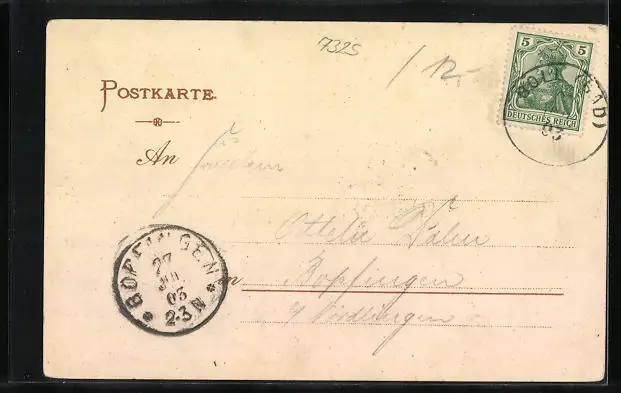 7325
/ 12.-
5 5
DEUTSCHES REICH
BOLL (BAD)
03
POSTKARTE.
An Fräulein
Ottilie
Bopfingen
b/ Nördlingen
BOPFINGEN
27
JUL
03
2-3 N
in